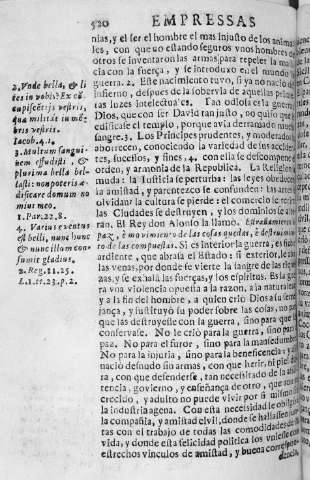 520 EMPRESSAS
nias, y el ser el hombre el mas injusto de los anima-
les, con que no estando seguros vnos hombres de
otros se inventaron las armas, para repeler la mali-
cia con la fuerça, y se introduxo en el mundo la
guerra. 2. Este nacimiento tuvo, si ya no nació del
infierno, despues de la sobervia de aquellas prime-
ras luzes intelectuales. Tan odiosa es la guerra a
Dios, que con ser David tan justo, no quiso que le
edificase el templo, porque avia derramado mucha
sangre. 3. Los Principes prudentes, y moderados la
aborrecen, conociendo la variedad de sus acciden-
tes, sucesos, y fines. 4. con ella se descompone el
orden, y armonia de la Republica. La Religion se
muda: la Iusticia se perturba: las leyes obedecen:
la amistad, y parentezco se confunden: las artes se
olvidan: la cultura se pierde: el comercio se retira:
las Ciudades se destruyen, y los dominios se alte-
ran. El Rey don Alonso la llamó. Estrañamiento de
paz, è movimiento de las cosas quedas, è destruimien-
to de las compuestas. Si es interior la guerra, es fiebre
ardiente, que abrasa el Estado: si exterior, le abre
las venas, por donde se vierte la sangre de las rique-
zas, y se exhalan las fuerças, y los espiritus. Es la guer-
ra voa violencia opuesta a la razon, a la naturaleza,
y a la fin del hombre, a quien crió Dios a su seme-
jança, y sustituyó su poder sobre las cosas, no para
que las destruyesse con la guerra, sino para que las
conservase. No le crió para la guerra, sino para la
paz. No para el furor, sino para la mansedumbre.
No para la injuria, sino para la beneficencia: y assi
nació desnudo sin armas, con que herir, ni piel du-
ra, con que defenderse, tan necesitado de la asis-
tencia, govierno, y enseñança de otro, que aun ya
crecido, y adulto no puede vivir por si mismo sin
la industria agena. Con esta necesidad le obligó a
la compañia, y amistad civil, donde se hallassen jun-
tas con el trabajo de todas las comodidades de la
vida, y donde esta felicidad politica los vniesse con
estrechos vinculos de amistad, y buena correspon-
dencia,
2. Vnde bella, & li-
tes in vobis? Ex cō-
cupiscētijs vestris,
qua militāt in mē-
bris vestris.
Iacob. 4.1.
3. Multum sangui-
nem effudisti, &
plurima bella bel-
lasti: non poteris a-
dificare domum no
mini meo.
1. Par. 22.8.
4. Varius eventus
est belli, nunc hunc
& nunc illum con-
sumit gladius.
2. Reg. 11.25.
L.1. tt.23. p.2.